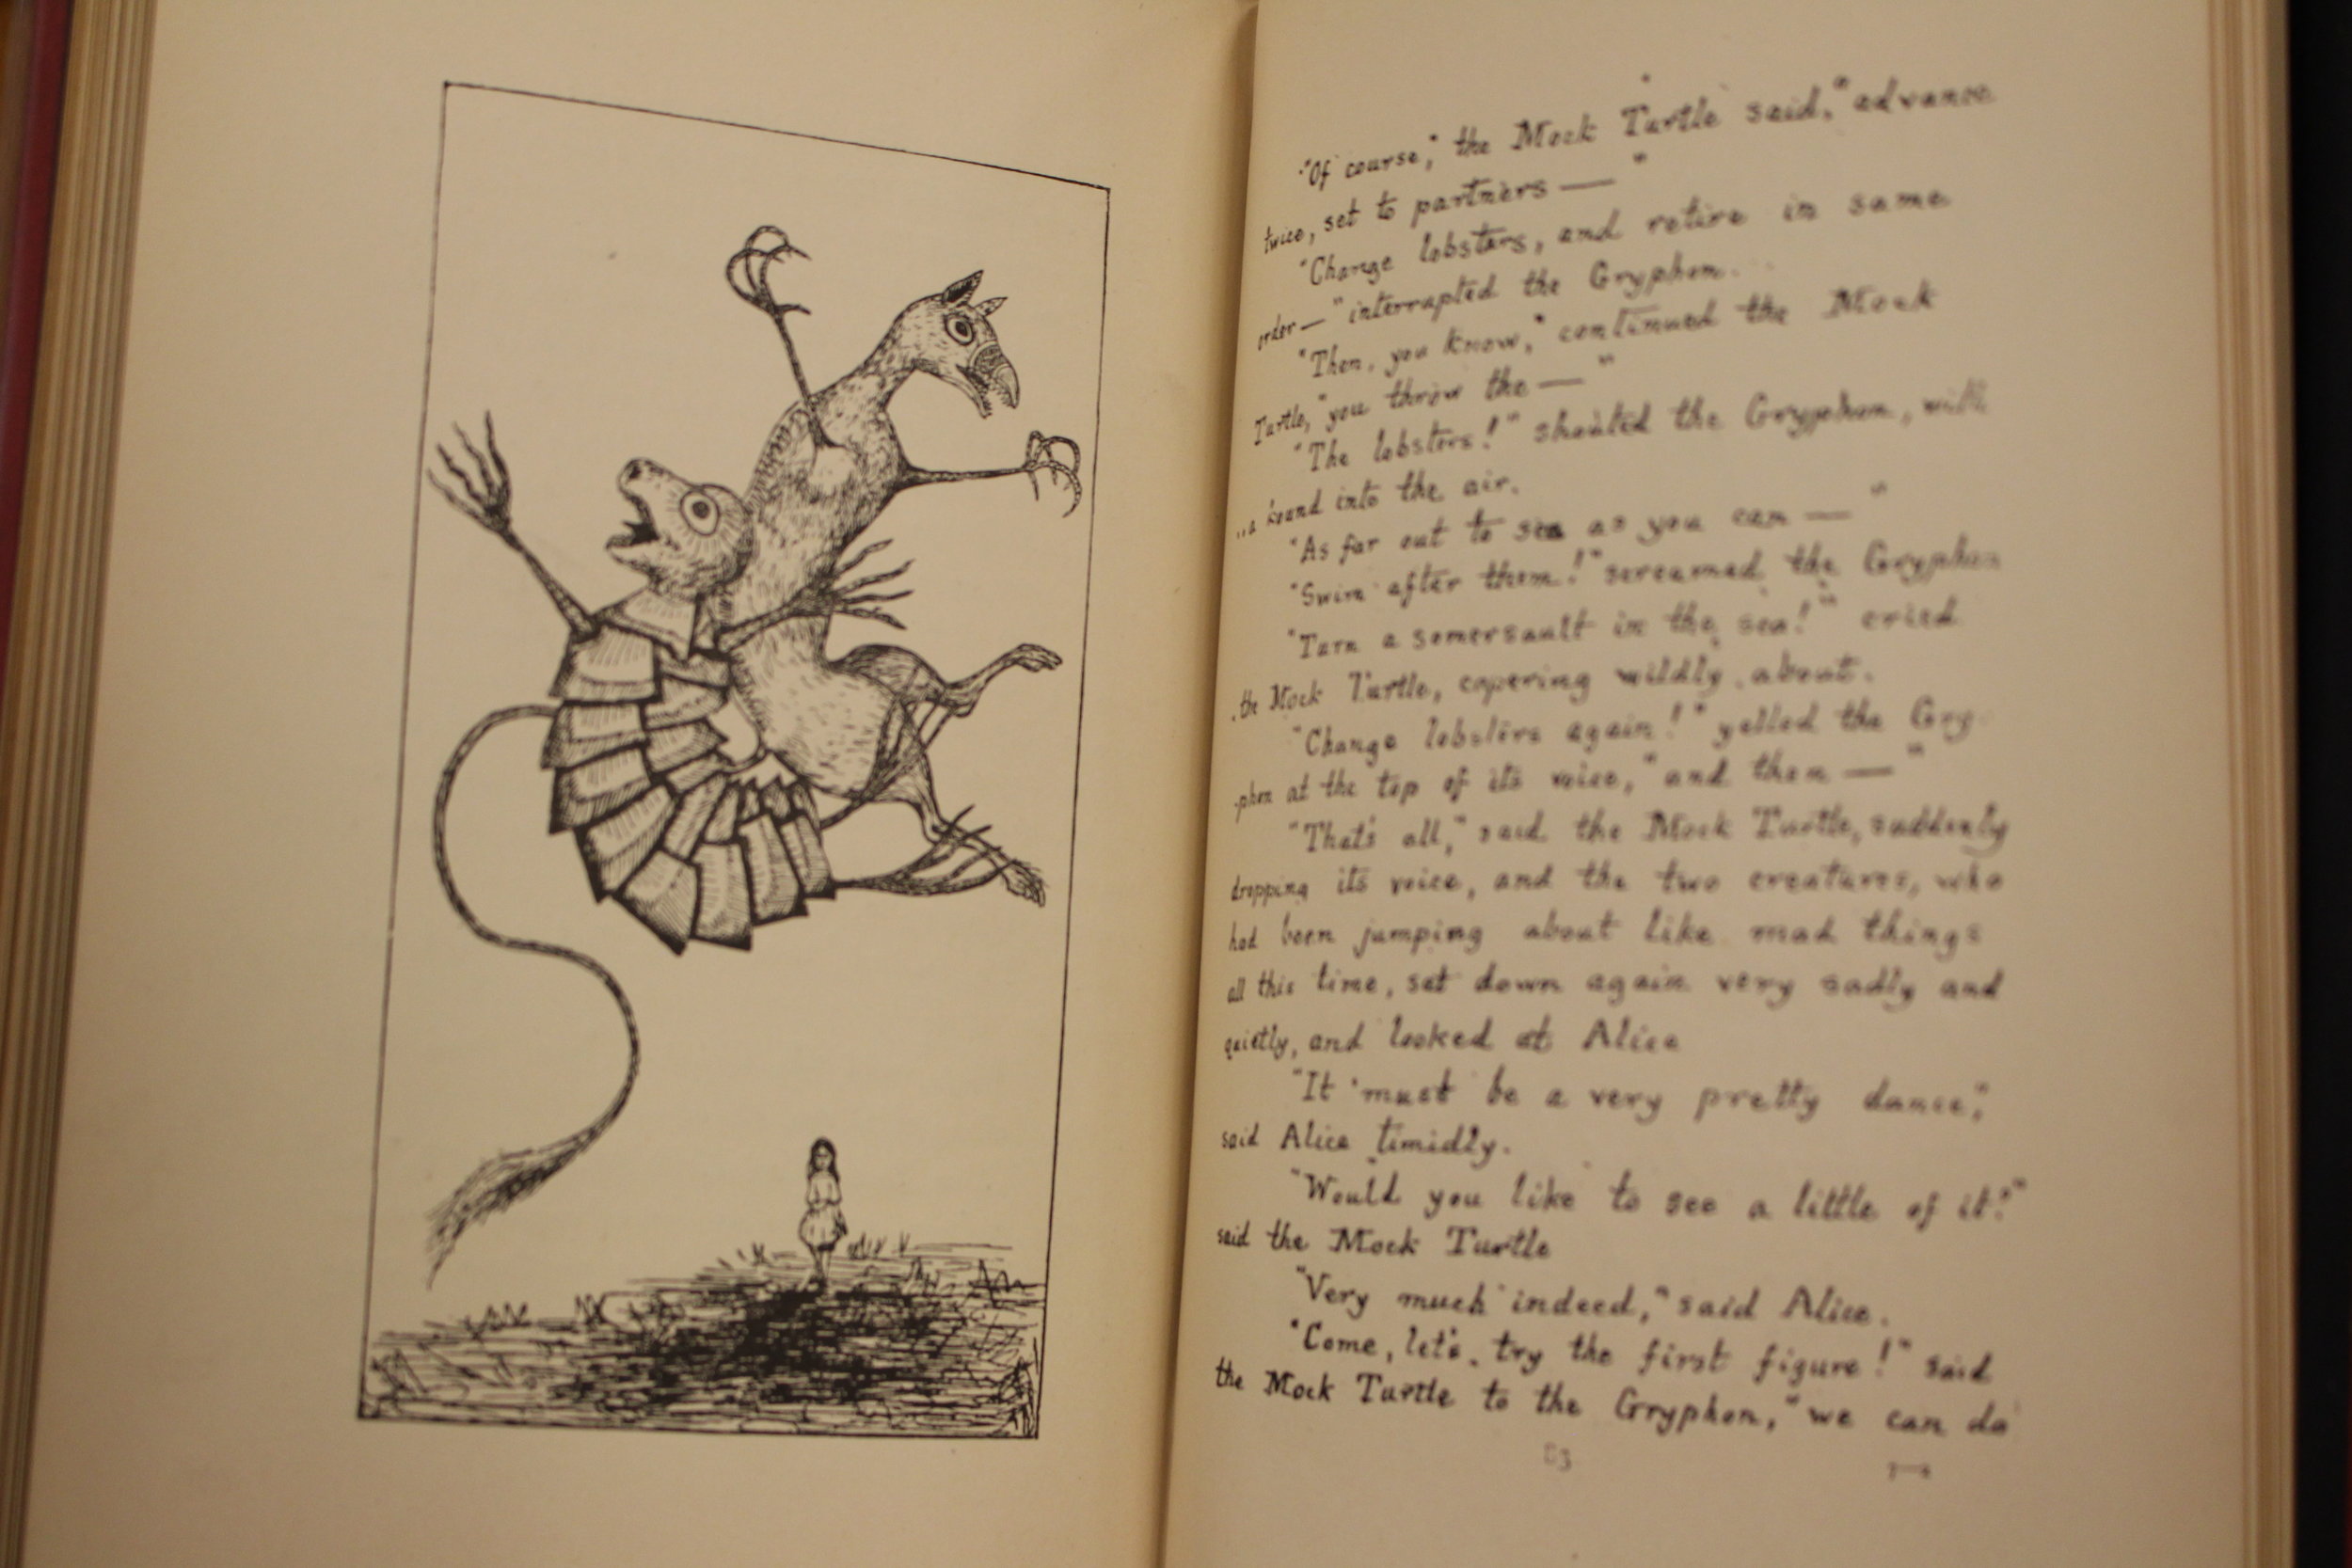 "Of course," the Mock Turtle said, "advance
twice, set to partners — "
"Change lobsters, and retire in same
order — " interrupted the Gryphon.
"Then, you know," continued the Mock
Turtle, "you throw the — "
"The lobsters!" shouted the Gryphon, with
a bound into the air.
"As far out to sea as you can — "
"Swim after them!" screamed the Gryphon
"Turn a somersault in the sea!" cried
the Mock Turtle, capering wildly about.
"Change lobsters again!" yelled the Gry-
-phon at the top of its voice, "and then — "
"That's all," said the Mock Turtle, suddenly
dropping its voice, and the two creatures, who
had been jumping about like mad things
all this time, sat down again very sadly and
quietly, and looked at Alice
"It must be a very pretty dance,"
said Alice timidly.
"Would you like to see a little of it?"
said the Mock Turtle
"Very much indeed," said Alice.
"Come, let's try the first figure!" said
the Mock Turtle to the Gryphon, "we can do
83